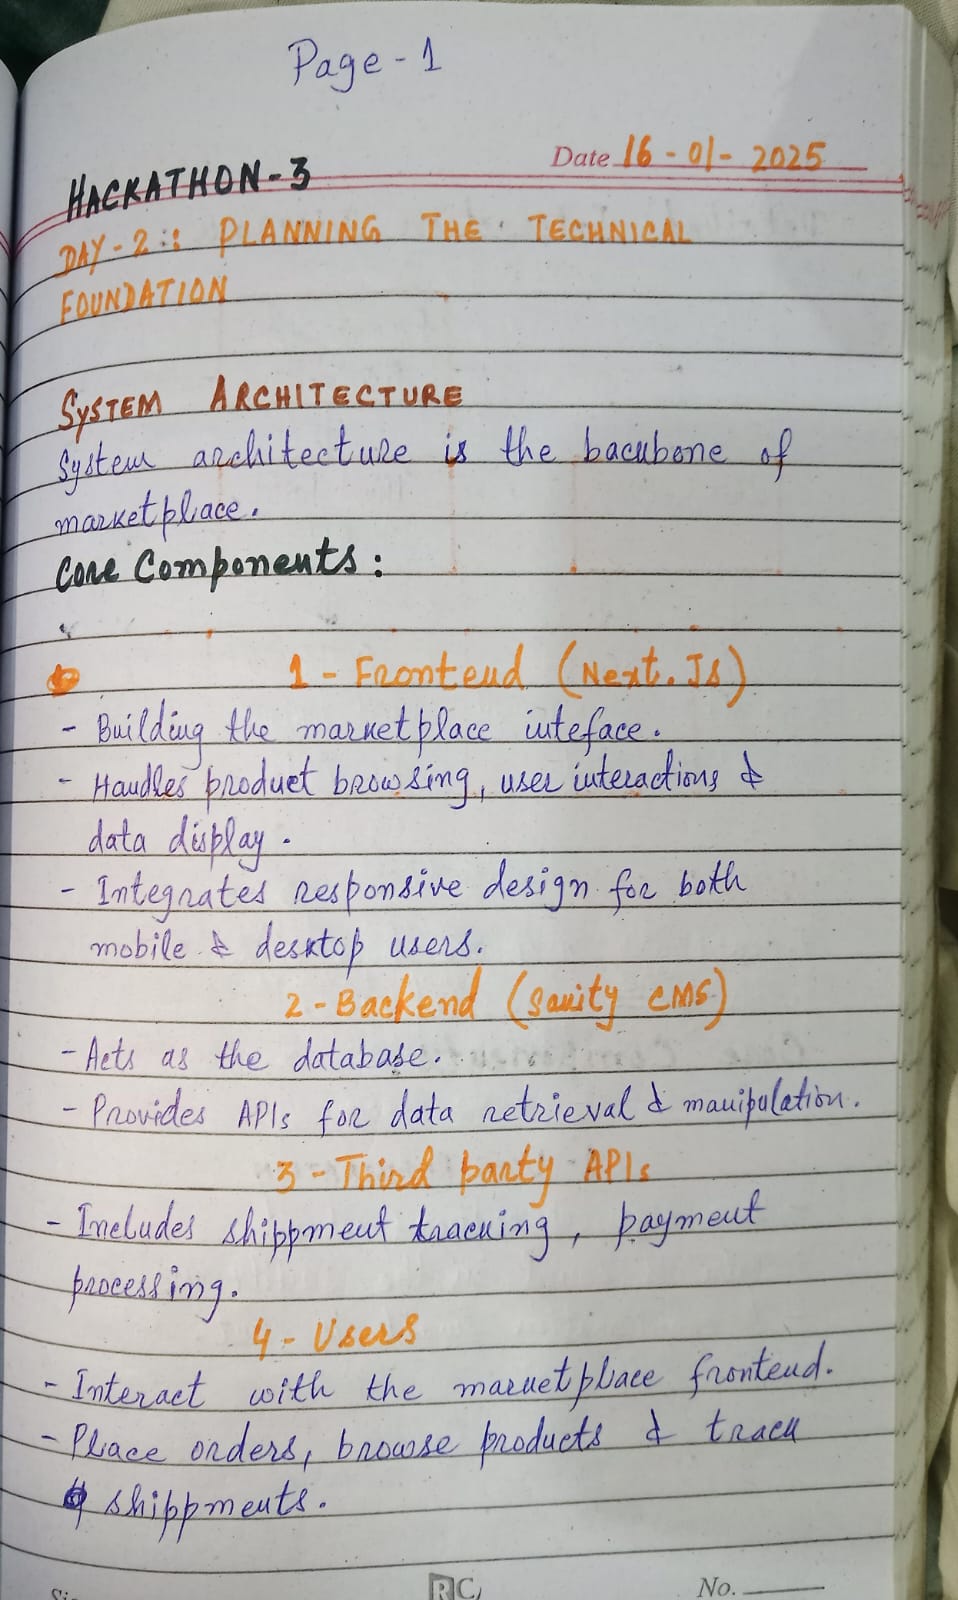 Page - 1
Date 16 - 01 - 2025
HACKATHON - 3
DAY - 2 :: PLANNING THE TECHNICAL
FOUNDATION
SYSTEM ARCHITECTURE
System architecture is the backbone of
marketplace.
Core Components :
1 - Frontend (Next.Js)
- Building the marketplace inteface.
- Handles product browsing, user interactions &
data display.
- Integrates responsive design for both
mobile & desktop users.
2 - Backend (Sanity CMS)
- Acts as the database.
- Provides APIs for data retrieval & manipulation.
3 - Third party APIs
- Includes shippment tracking, payment
processing.
4 - Users
- Interact with the marketplace frontend.
- Place orders, browse products & track
shippments.
RC
No.